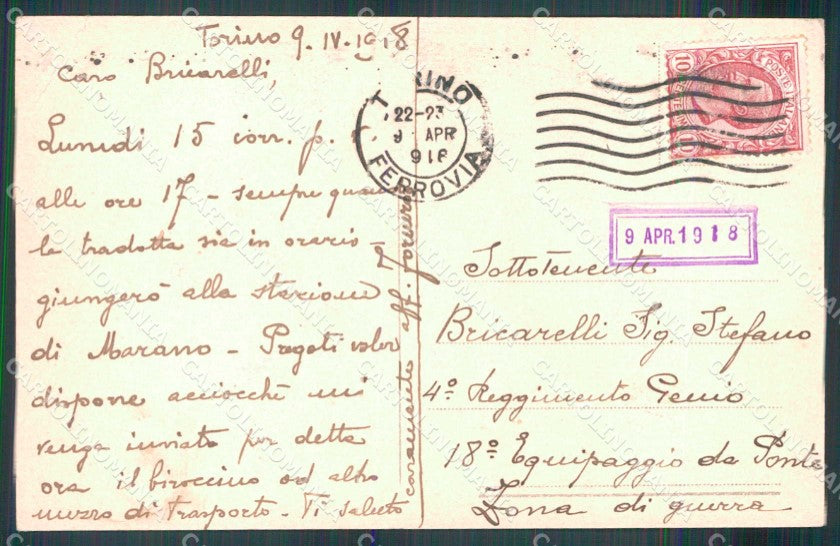 Torino 9. IV. 1918
Caro Bricarelli,
Lunedi 15 corr. p.
alle ore 17 - sempre quan
la tradotta sia in orario -
giungerò alla stazione
di Marano - Pregoti voler
disporre acciocchè mi
venga inviato per detta
ora il biroccino od altro
mezzo di trasporto - Ti saluto
caramente aff.
TORINO
22-23
9 APR
918
FERROVIA
POSTE ITALIANE
10
9 APR. 1918
Sottotenente
Bricarelli Sig. Stefano
4° Reggimento Genio
18° Equipaggio da Ponte
Zona di guerra
CARTOLINOMANIA